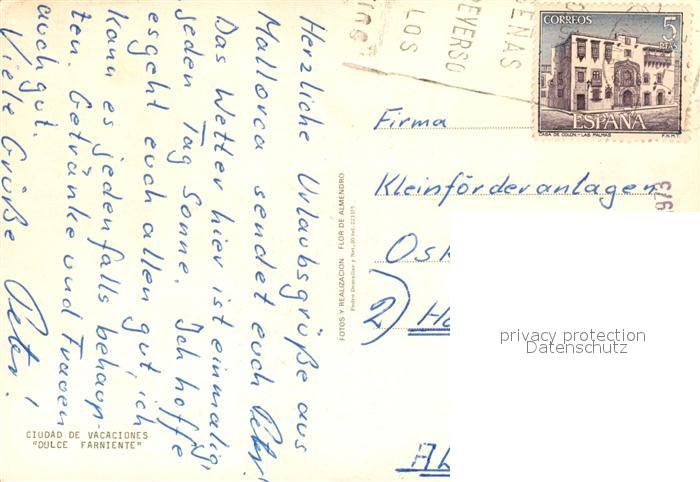 Herzliche Urlaubsgrüße aus
Mallorca sendet euch Peter!
Das Wetter hier ist einmalig,
jeden Tag Sonne. Ich hoffe
es geht euch allen gut, ich
kann es jedenfalls behaup-
ten. Getränke und Frauen
auch gut.
Viele Grüße Peter!
CIUDAD DE VACACIONES
"DULCE FARNIENTE"
FOTOS Y REALIZACION FLOR DE ALMENDRO
LOS
REVERSO
SENAS
CORREOS
5
PTAS
ESPAÑA
CASA DE COLON-LAS PALMAS
F.N.M.T.
Firma
Kleinförderanlagen
Osk
2) Ha
privacy protection
Datenschutz